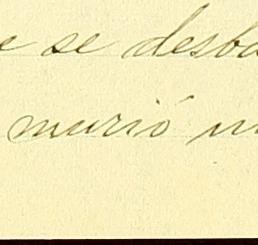 e se desba
murió